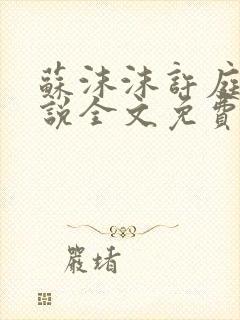 蘇沫沫許庭
說全文免費
嚴堵